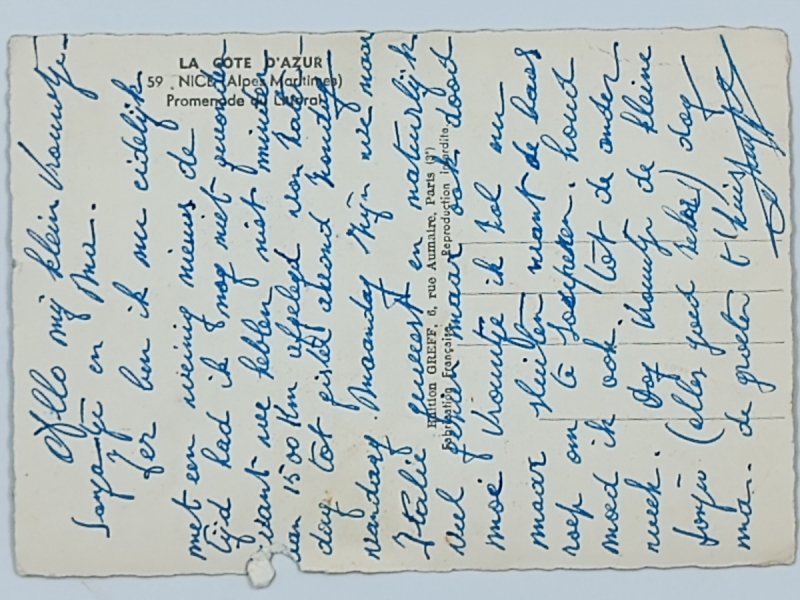 LA CÔTE D'AZUR
59 . NICE (Alpes Maritimes)
Promenade du Littoral
Edition GREFF. 6, rue Aumaire, Paris (3e)
Fabrication Française. Reproduction Interdite.
Allo mij klein vrouwtje
en Ma.
Zer ben ik nu eidelijk
met een weinig nieuws de
tijd had ik nog niet
want we hebben niet minder
van 1500 Km afgelegd van
dag tot gister avond
vandaag Maandag zijn we naar
Italie geweest en natuurlijk
veel maar ook dood
moe vrouwtje ik zal nu
maar sluiten want de baas
roep om te soupeken. houd
moed ik ook. tot de ander
week. Dag vrouwtje de kleine
(alles goed zeker) dag
ma. de groeten t'huis